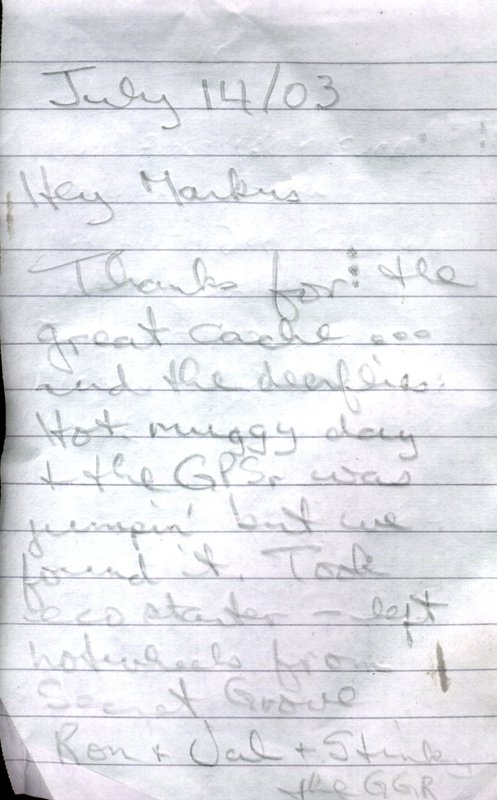 July 14/03
Hey Markus
Thanks for the
great cache ...
and the deerflies.
Hot muggy day
+ the GPS. was
jumpin' but we
found it. Took
eco starter - left
hotwheels from
Secret Grove
Ron + Val + Stinky
the GGR